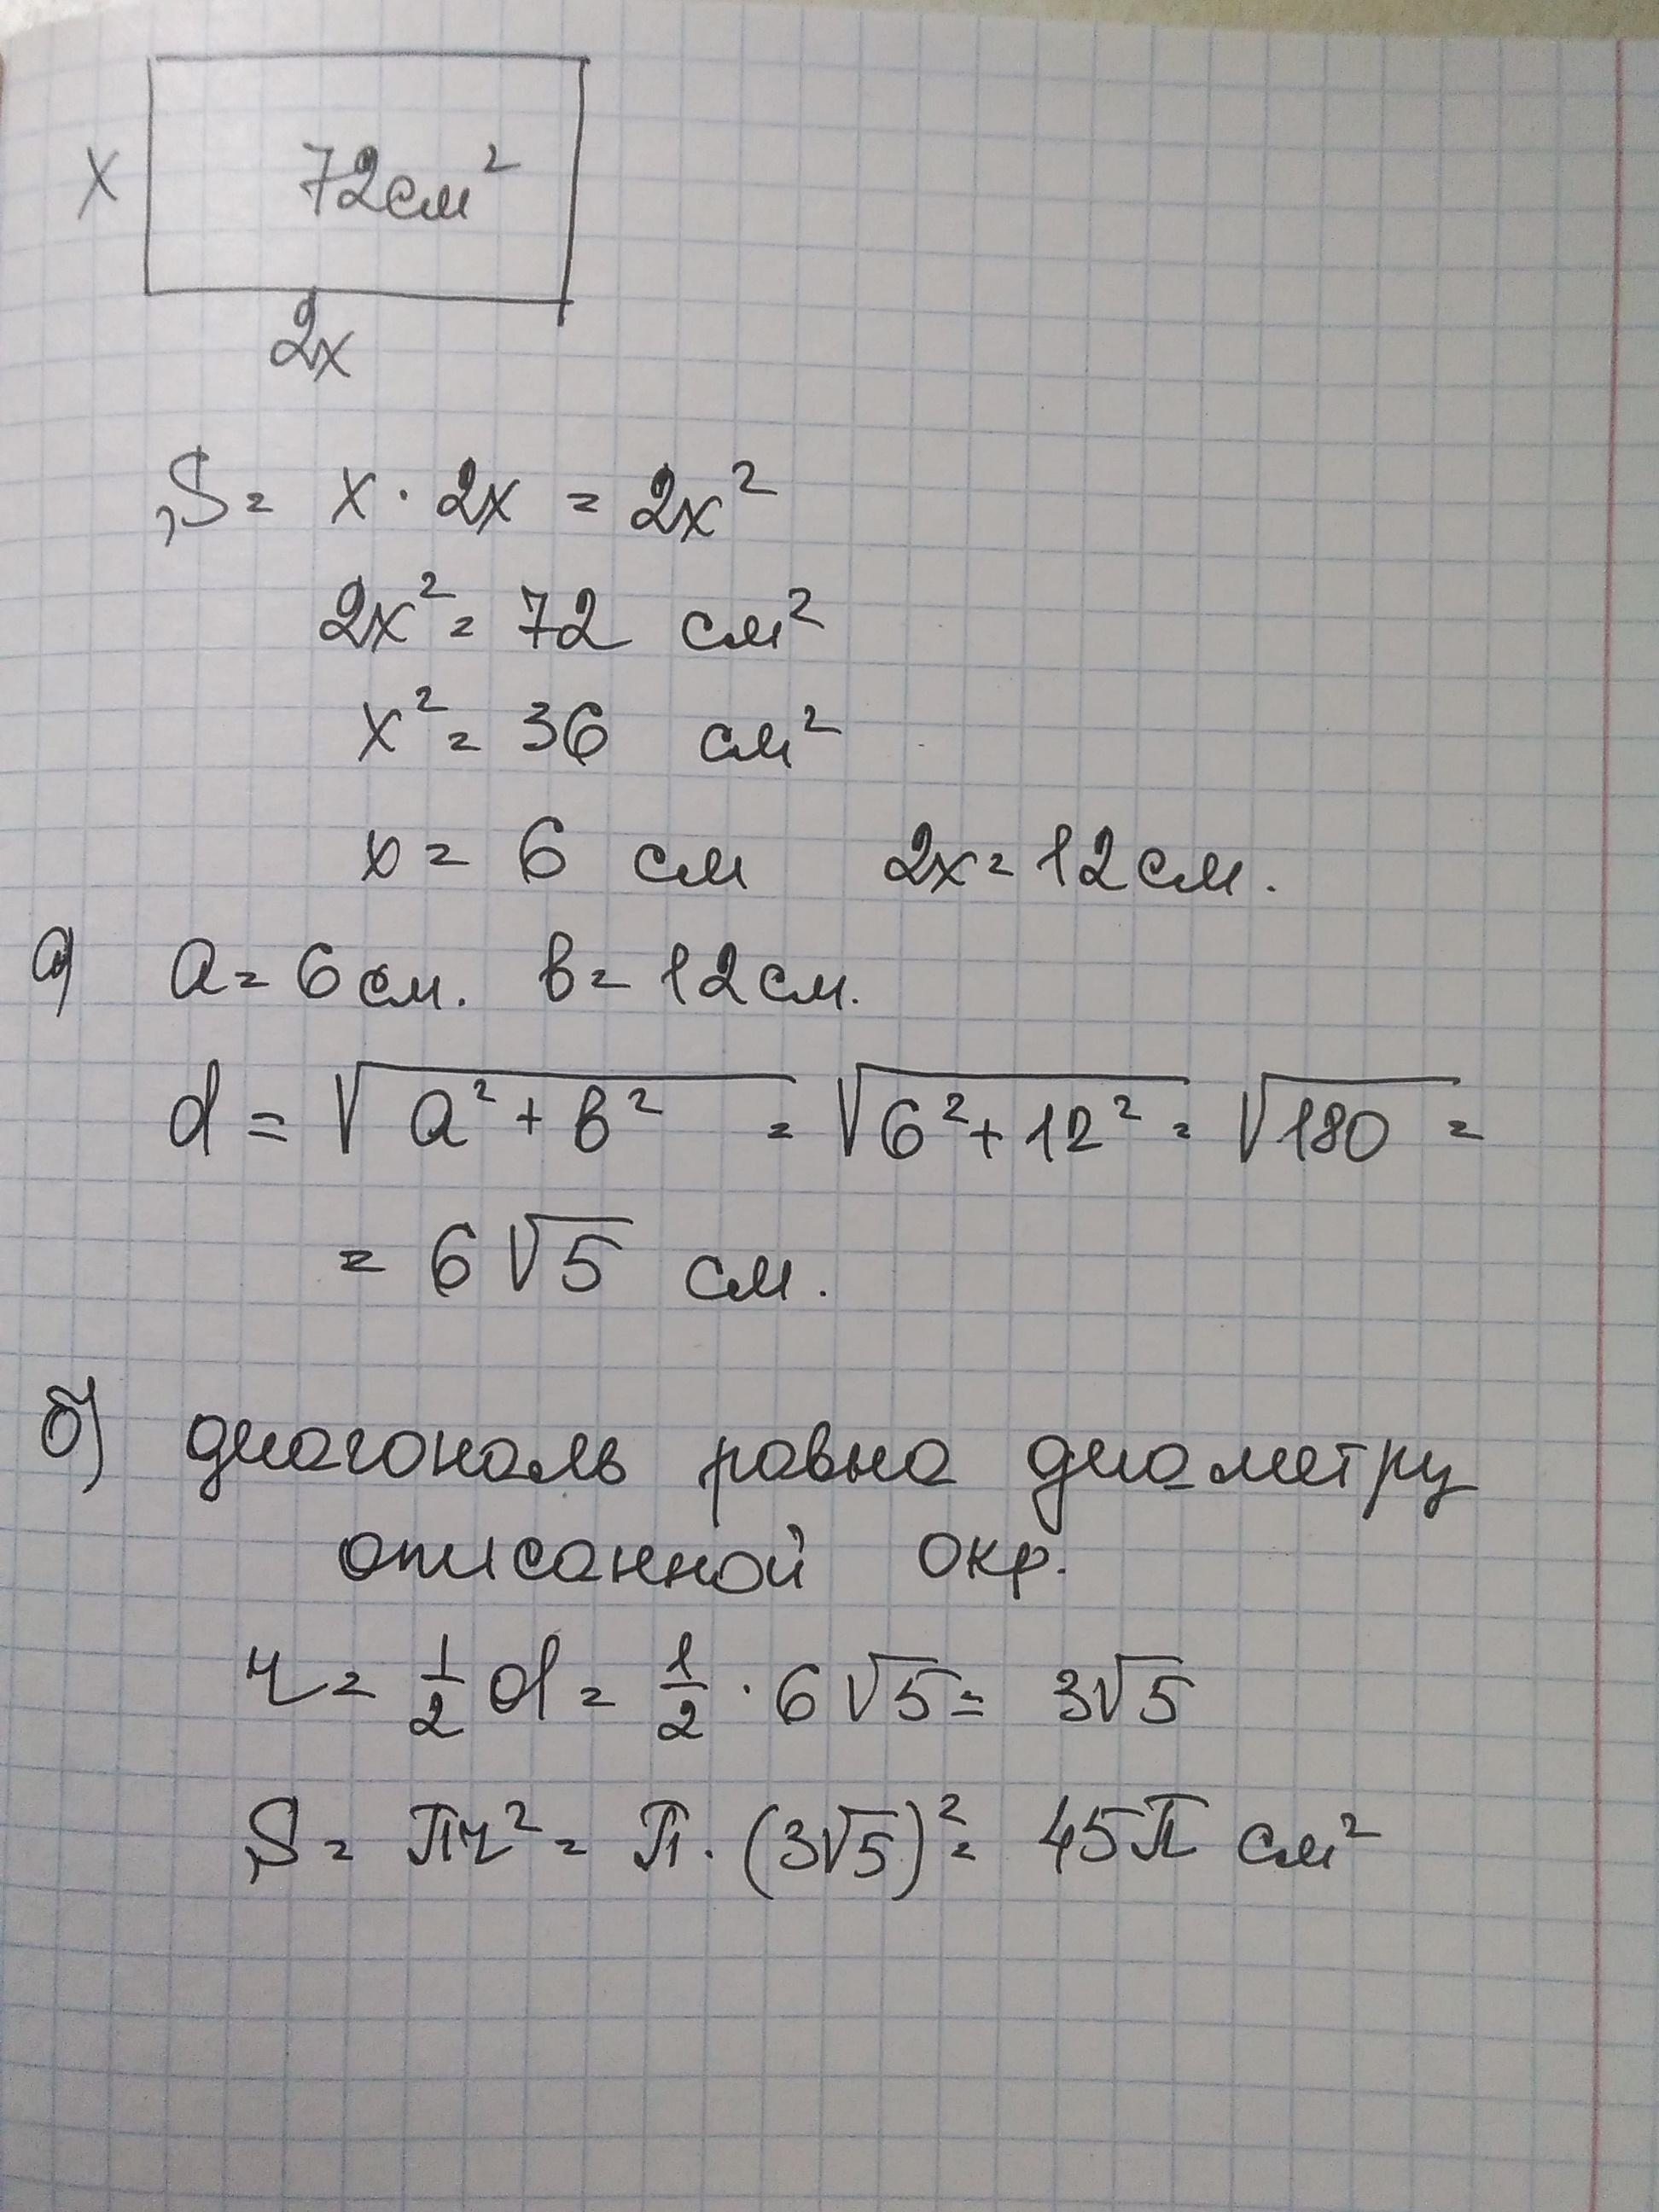 x 72см²
2x
S = x · 2x = 2x²
2x² = 72 см²
x² = 36 см²
x = 6 см 2x = 12 см.
а) a = 6 см. b = 12 см.
d = √(a² + b²) = √(6² + 12²) = √180 =
= 6√5 см.
б) диагональ равна диаметру
описанной окр.
r = 1/2 d = 1/2 · 6√5 = 3√5
S = πr² = π · (3√5)² = 45π см²